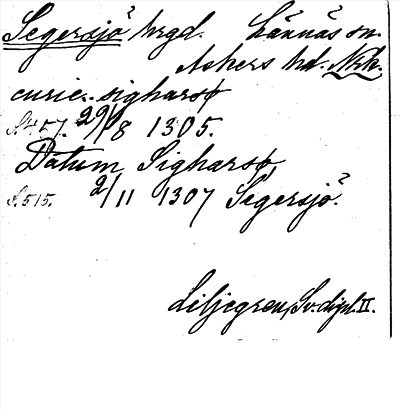 Segersjö? hrgd. Lännäs sn.
Askers hd. Nrk.
curie. sigharsø
S. 457. 29/8 1305.
Datum Sigharsø,
S. 515. 2/11 1307 Segersjö?.
Liljegren, Sv. dipl. II.